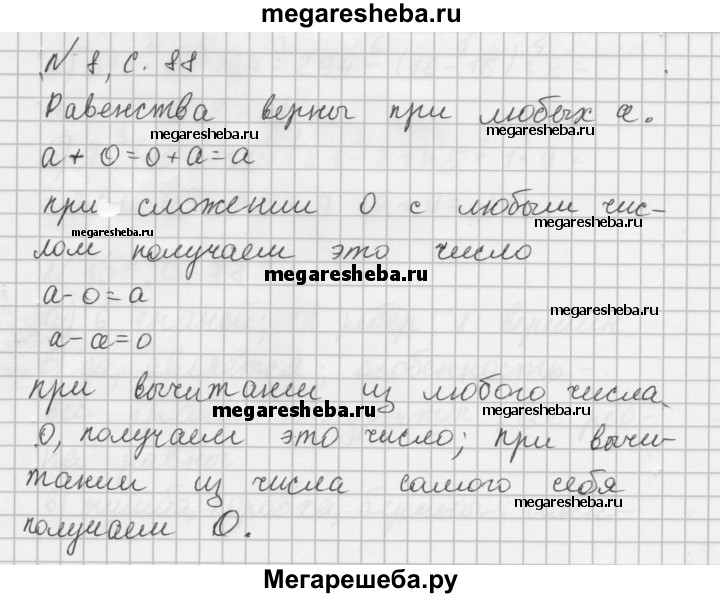 megaresheba.ru
№ 8, с. 88
Равенства верны при любых а.
megaresheba.ru megaresheba.ru
а + 0 = 0 + а = а
при сложении 0 с любым чис-
megaresheba.ru megaresheba.ru
лом получаем это число
megaresheba.ru
а - 0 = а
megaresheba.ru
а - а = 0
при вычитании из любого числа
megaresheba.ru megaresheba.ru
0, получаем это число; при вычи-
тании из числа самого себя
megaresheba.ru
получаем 0.
Мегарешеба.ру